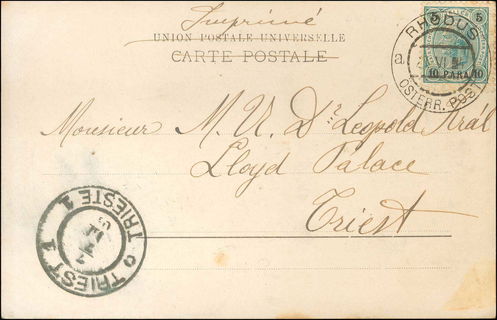 Imprimé
UNION POSTALE UNIVERSELLE
CARTE POSTALE
RHODUS
a
VI
ÖSTERR. POST
5
10 PARA 10
Monsieur M. U. Dr. Leopold Král
Lloyd Palace
Triest
TRIESTE 1
TRIEST 1